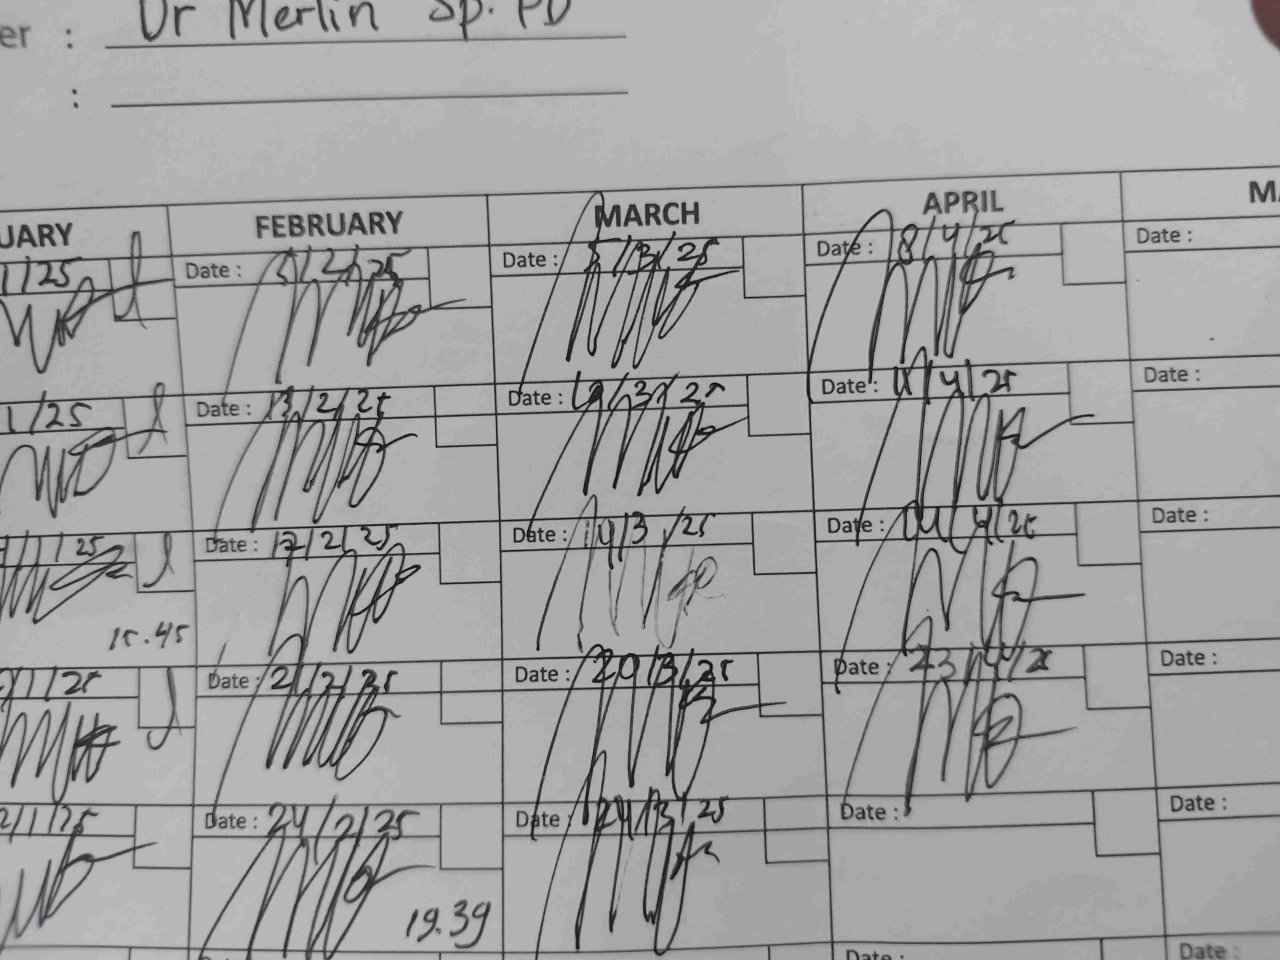 er : Dr Merlin Sp. PD
:
UARY FEBRUARY MARCH APRIL MA
1/25 Date : 5/2/25 Date : 5/3/25 Date : 8/4/25 Date :
1/25 Date : 13/2/25 Date : 12/3/25 Date : 11/4/25 Date :
/1/25 Date : 17/2/25 Date : 14/3/25 Date : 14/4/25 Date :
15.45
/1/25 Date : 21/2/25 Date : 20/3/25 Date : 23/4/25 Date :
2/1/25 Date : 24/2/25 Date : 24/3/25 Date : Date :
19.39
Date : Date :